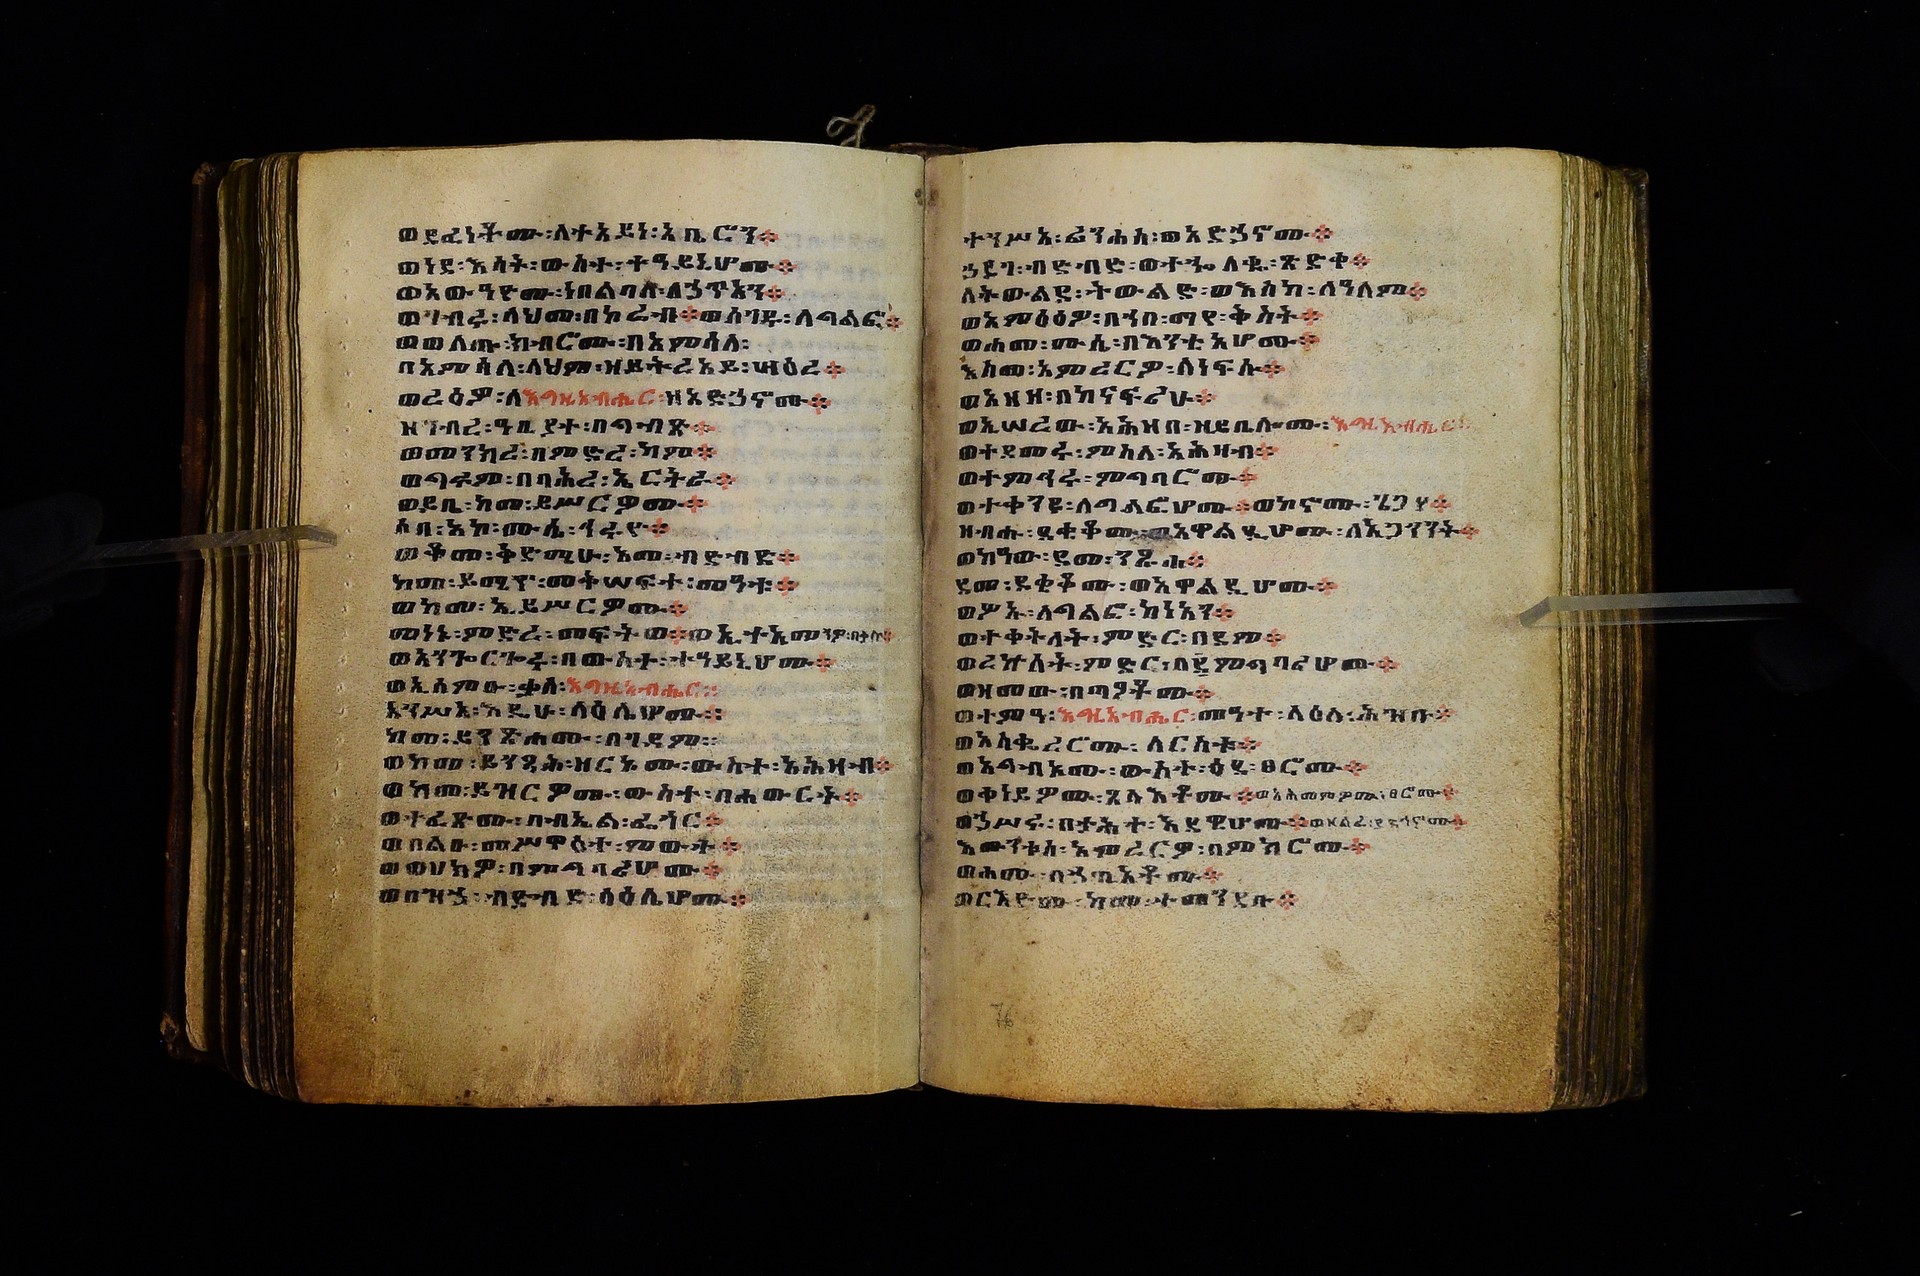 ወደፈነቶሙ፡ለተአይነ፡አቤሮን፨
ወነደ፡እሳት፡ውስተ፡ተዓይኒሆሙ፨
ወአውዓዮሙ፡ነበልባሉ፡ለኃጥአን፨
ወገብሩ፡ላህመ፡በኮሬብ፨ወሰገዱ፡ለግልፎ፨
ወወለጡ፡ክብሮሙ፡በአምሳለ፡
በአምሳለ፡ላህም፡ዘይትረአይ፡ሣዕረ፨
ወረዕዎ፡ለእግዚአብሔር፡ዘአድኃኖሙ፨
ዘገብረ፡ዓቢያተ፡በግብጽ፨
ወመንክረ፡በምድረ፡ካም፨
ወግሩም፡በባሕረ፡ኤርትራ፨
ወይቤ፡ከመ፡ይሠርዎሙ፨
ሶበ፡አኮ፡ሙሴ፡ኅሩዩ፨
ወቆመ፡ቅድሜሁ፡አመ፡ብድብድ፨
ከመ፡ይሚጥ፡መቅሠፍተ፡መዓቱ፨
ወከመ፡ኢይሠርዎሙ፨
መነኑ፡ምድረ፡መፍትወ፨ወኢተአመንዎ፡በቃሉ፨
ወአንጐርጐሩ፡በውስተ፡ተዓይኒሆሙ፨
ወኢሰምዑ፡ቃለ፡እግዚአብሔር፨
አንሥአ፡እዴሁ፡ላዕሌሆሙ፨
ከመ፡ይንጽሖሙ፡በገዳም፨
ወከመ፡ይንጻሕ፡ዘርኦሙ፡ውስተ፡አሕዛብ፨
ወከመ፡ይዝርዎሙ፡ውስተ፡በሐውርት፨
ወተፈጸሙ፡በብኤል፡ፌጎር፨
ወበልዑ፡መሥዋዕተ፡ምውት፨
ወወሀክዎ፡በምግባሪሆሙ፨
ወበዝኃ፡ብድብድ፡ላዕሌሆሙ፨
ተንሥአ፡ፊንሐስ፡ወአድኃኖሙ፨
ኃደገ፡ብድብድ፡ወተኈለቈ፡ጽድቀ፨
ለትውልደ፡ትውልድ፡ወእስከ፡ለዓለም፨
ወአምዕዕዎ፡በኀበ፡ማየ፡ቅስት፨
ወሐመ፡ሙሴ፡በእንቲአሆሙ፨
እስመ፡አምረርዎ፡ለነፍሱ፨
ወአዘዘ፡በከናፍሪሁ፨
ወኢሠረው፡አሕዛበ፡ዘይቤሎሙ፡እግዚአብሔር፨
ወተደመሩ፡ምስለ፡አሕዛብ፨
ወተምህሩ፡ምግባሮሙ፨
ወተቀንዩ፡ለግልፎሆሙ፨ወኮኖሙ፡ጌጋየ፨
ዘብሑ፡ደቂቆሙ፡ወአዋልዲሆሙ፡ለአጋንንት፨
ወከዓው፡ደመ፡ንጹሐ፨
ደመ፡ደቂቆሙ፡ወአዋልዲሆሙ፨
ወሦኡ፡ለግልፎ፡ከነአን፨
ወተቀትለት፡ምድር፡በደም፨
ወረኵሰት፡ምድር፡በምግባሪሆሙ፨
ወዘመው፡በጣዖቶሙ፨
ወተምዓ፡እግዚአብሔር፡መዓተ፡ላዕለ፡ሕዝቡ፨
ወአስቈረሮሙ፡ለርስቱ፨
ወአግብኦሙ፡ውስተ፡ዕደ፡ፀሮሙ፨
ወቀነይዎሙ፡ጸላእቶሙ፨ወአሕመምዎሙ፡ፀሮሙ፨
ወኃሥሩ፡በታሕተ፡እደዊሆሙ፨ወዘልፈ፡ያድኅኖሙ፨
እሙንቱሰ፡አምረርዎ፡በምክሮሙ፨
ወሐሙ፡በኃጢአቶሙ፨
ወርእዮሙ፡ከመ፡ተመንደቡ፨
76